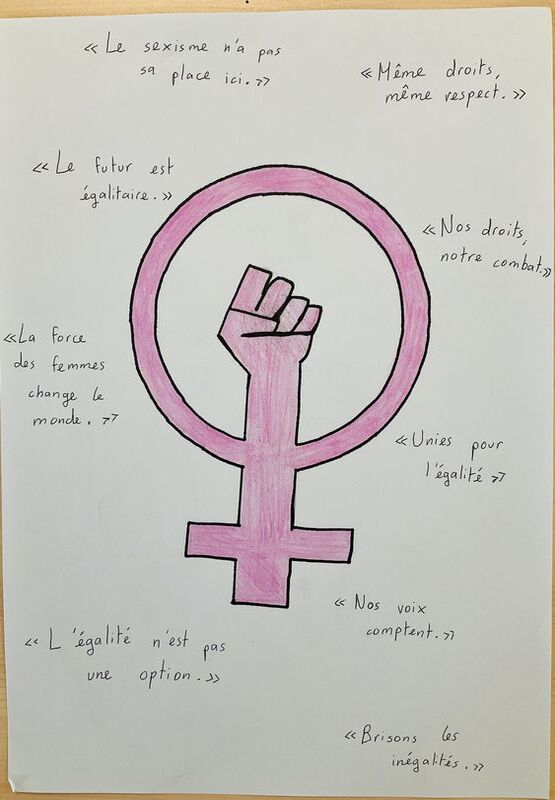 « Le sexisme n'a pas
sa place ici. »
« Même droits,
même respect. »
« Le futur est
égalitaire. »
« Nos droits,
notre combat. »
« La force
des femmes
change le
monde. »
« Unies pour
l'égalité »
« Nos voix
comptent. »
« L'égalité n'est pas
une option. »
« Brisons les
inégalités. »